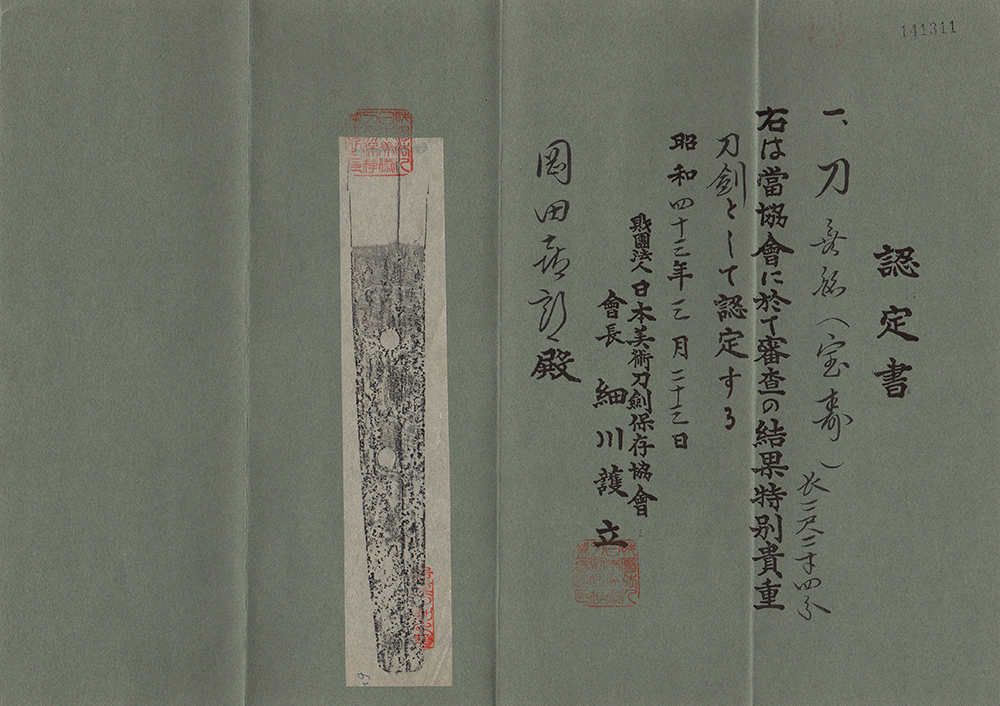 141311
認定書
一、刀 無銘(宝寿) 長二尺二寸四分
右は當協會に於て審査の結果特別貴重
刀劍として認定する
昭和四十三年三月二十三日
財團法人日本美術刀劍保存協會
會長 細川護立
岡田喜郎殿